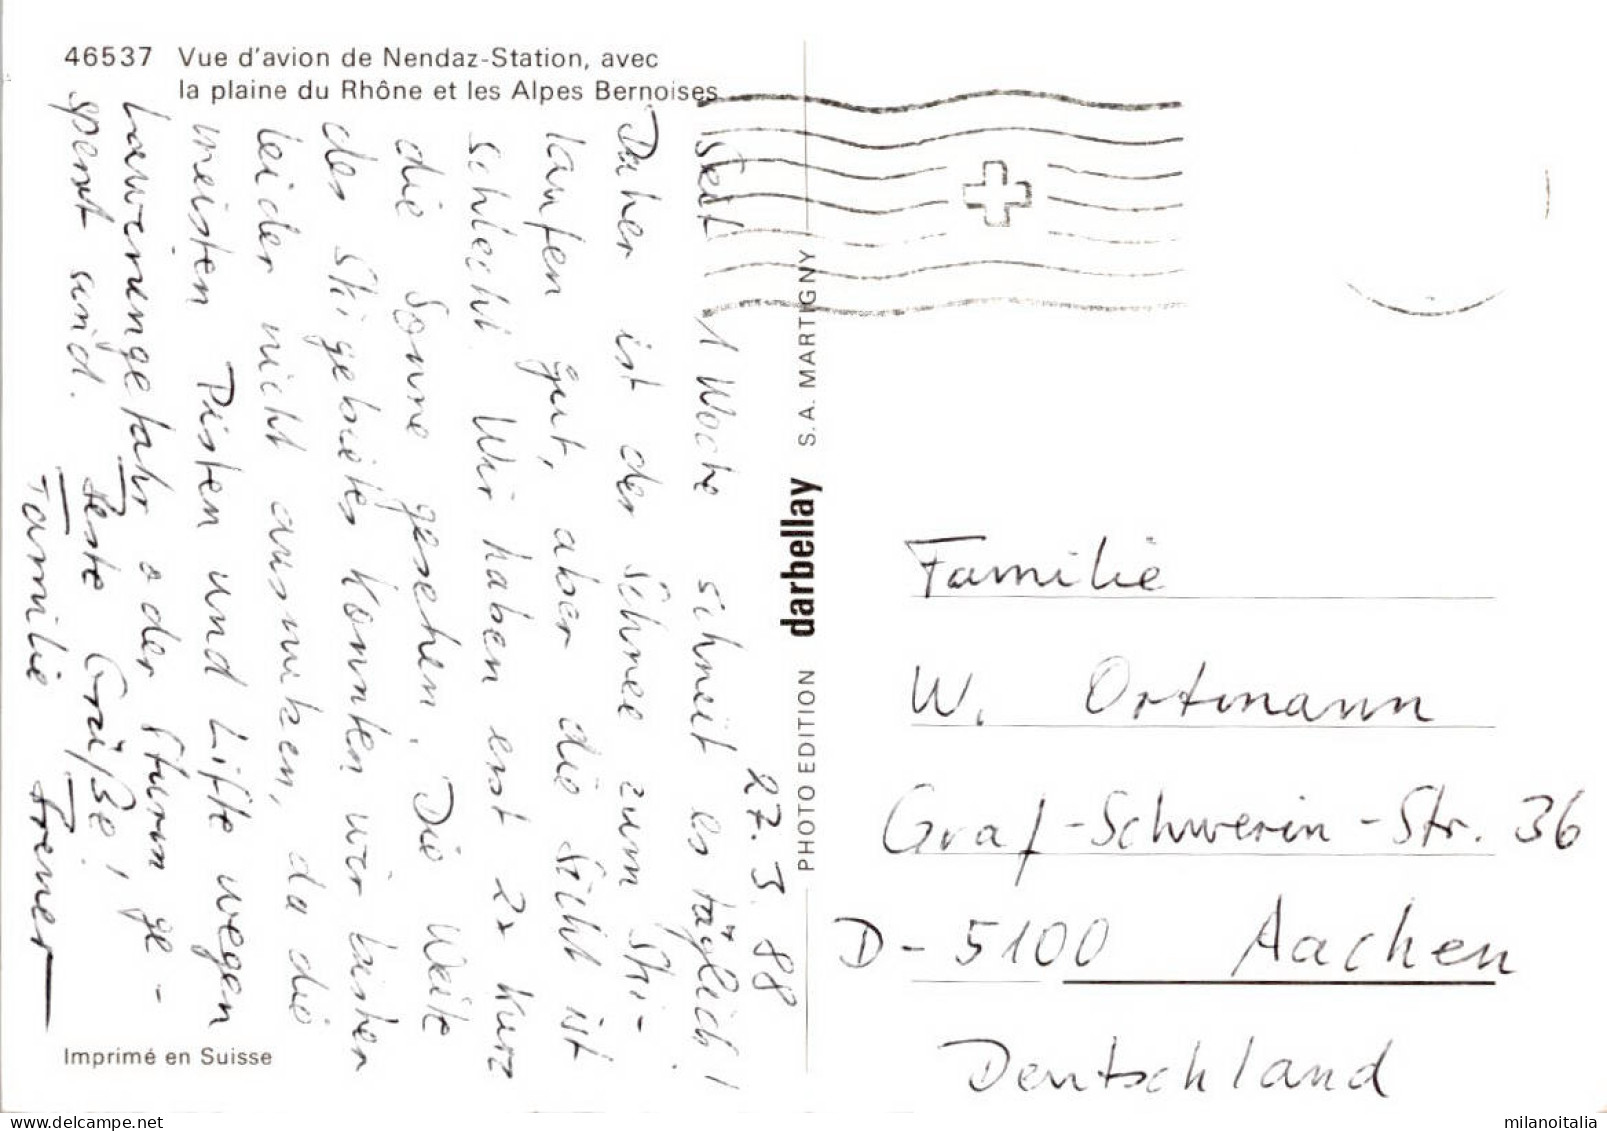 46537 Vue d'avion de Nendaz-Station, avec
la plaine du Rhône et les Alpes Bernoises
27.3.88
Seit 1 Woche schneit es täglich!
Daher ist der Schnee zum Ski-
laufen gut, aber die Sicht ist
schlecht. Wir haben erst 2x kurz
die Sonne gesehen. Die Weite
des Skigebietes konnten wir bisher
leider nicht ausnutzen, da die
meisten Pisten und Lifte wegen
Lawinengefahr oder Sturm ge-
sperrt sind. Beste Grüße!
Familie
PHOTO EDITION darbellay S.A. MARTIGNY
Familie
W. Ortmann
Graf-Schwerin-Str. 36
D-5100 Aachen
Deutschland
Imprimé en Suisse
milanoitalia